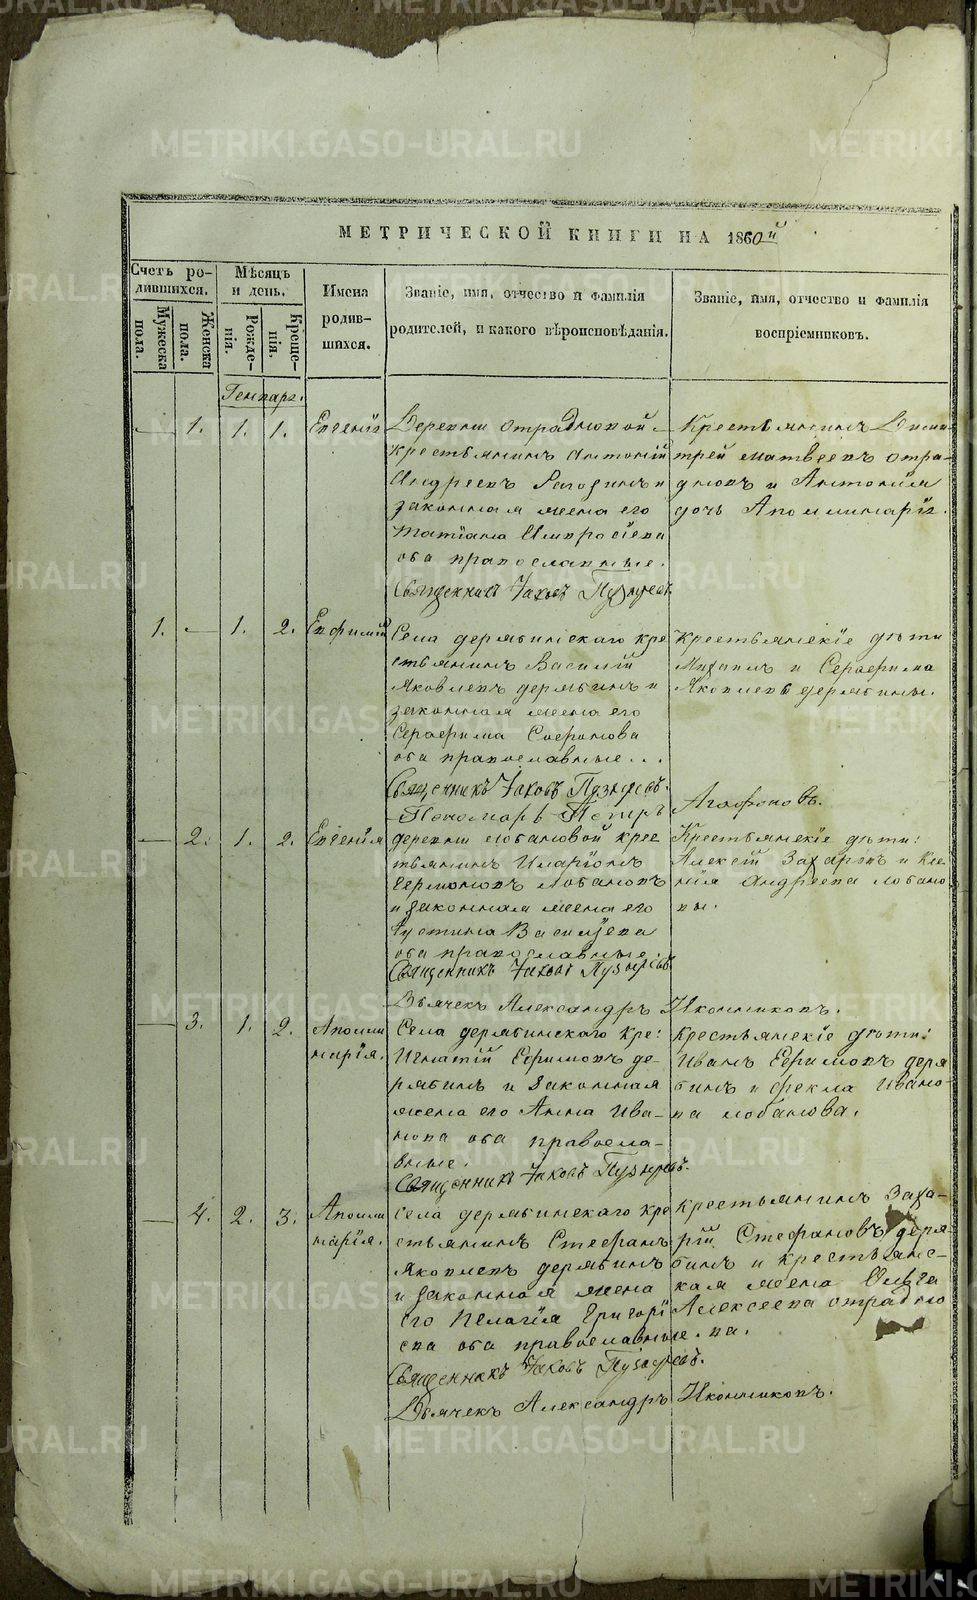 METRIKI.GASO-URAL.RU
МЕТРИЧЕСКОЙ КНИГИ НА 1860й
Счетъ ро-
дившихся.
Мѣсяцъ
и день.
Имена
родив-
шихся.
Званіе, имя, отчество и фамилія
родителей, и какого вѣроисповѣданія.
Званіе, имя, отчество и фамилія
воспріемниковъ.
Мужеска
пола.
Женска
пола.
Рожде-
нія.
Креще-
нія.
Генварь.
1. 1. 1. Евгенія
Деревни Отрадновой
крестьянинъ Антоній
Андреевъ Рагозинъ и
законная жена его
Татіана Амвросіева
оба православные.
Священникъ Іаковъ Пузыревъ
Крестьянинъ Дими-
трей Матвеевъ Отра-
дновъ и Антонія
дочь Аполинарія.
1. 1. 2. Евфимій
Села Дерябинскаго кре-
стьянинъ Василій
Яковлевъ Дерябинъ и
законная жена его
Серафима Софронова
оба православные...
Священникъ Іаковъ Пузыревъ.
Пономарь Петръ Агафоновъ.
Крестьянскіе дѣти
Михаилъ и Серафима
Яковлевы Дерябины.
2. 1. 2. Евгенія
деревни Лобановой крес
тьянинъ Иларіонъ
Ермиловъ Лобановъ
и законная жена его
Іустина Васильева
оба православные.
Священникъ Іаковъ Пузыревъ
Дьячекъ Александръ Иконниковъ.
Крестьянскіе дѣти:
Алексій Захаровъ и Ксе-
нія Андреева Лобано-
вы.
3. 1. 2. Аполли
нарія.
Села Дерябинскаго кре:
Игнатій Ефимовъ Де-
рябинъ и законная
жена его Анна Ива-
нова оба правосла-
вные.
Священникъ Іаковъ Пузыревъ.
Крестьянскіе дѣти:
Иванъ Ефимовъ Деря
бинъ и Фекла Ивано-
ва Лобанова.
4. 2. 3. Аполли
нарія.
Села Дерябинскаго кре
стьянинъ Стефанъ
Яковлевъ Дерябинъ
и законная жена
его Пелагія Григорі
ева оба православные.
Священникъ Іаковъ Пузыревъ.
Дьячекъ Александръ Иконниковъ.
крестьянинъ Заха-
рій Стефановъ Деря-
бинъ и крестьянс-
кая жена Ольга
Алексеева Отрадно
ва.